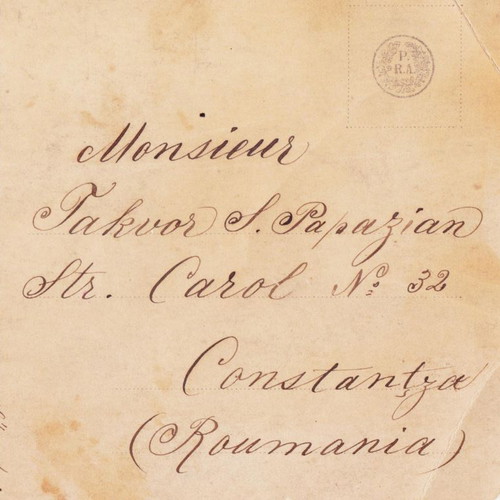 P.
R.A.
Monsieur
Takvor S. Papazian
Str. Carol No. 32
Constantza
(Roumania)